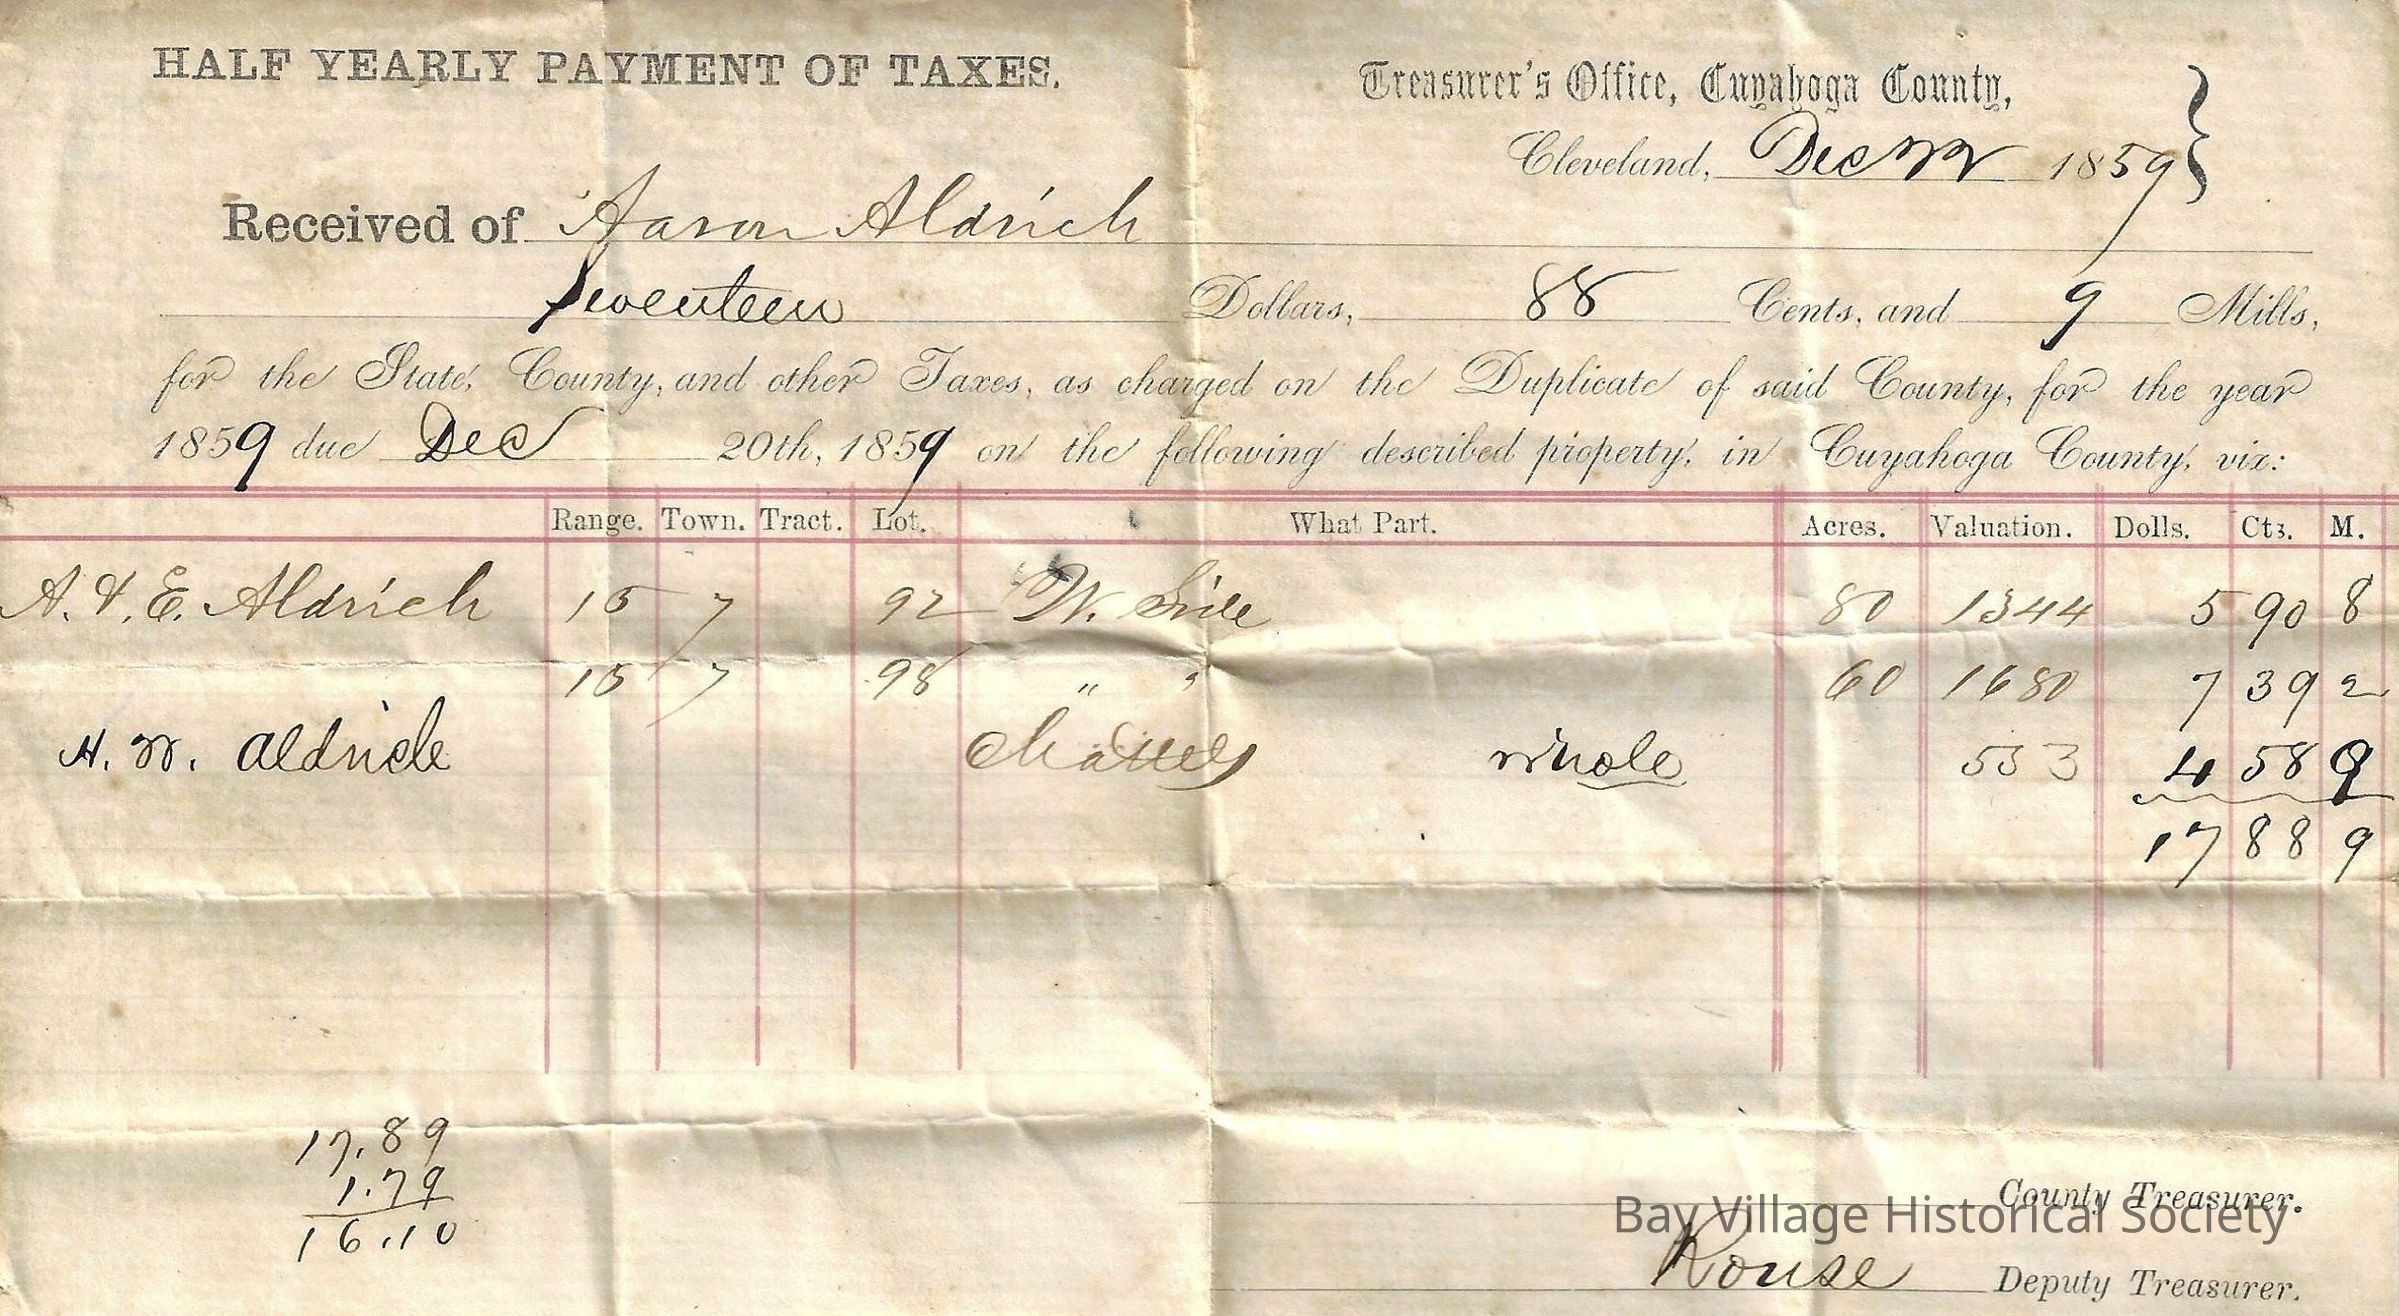 HALF YEARLY PAYMENT OF TAXES.
Treasurer's Office, Cuyahoga County,
Cleveland, Dec 22 1859
Received of Aaron Aldrich
Seventeen Dollars, 88 Cents, and 9 Mills,
for the State, County, and other Taxes, as charged on the Duplicate of said County, for the year
1859 due Dec 20th, 1859 on the following described property, in Cuyahoga County, viz:
Range. Town. Tract. Lot. What Part. Acres. Valuation. Dolls. Cts. M.
A. & E. Aldrich 15 7 92 W. Side 80 1344 5 90 8
15 7 98 " " 60 1680 7 39 2
H. W. Aldrich Chattels whole 553 4 58 9
17 88 9
17.89
1.79
16.10
County Treasurer.
Bay Village Historical Society
Rouse Deputy Treasurer.